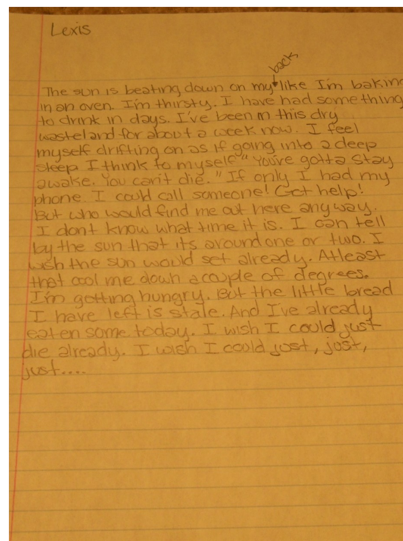 Lexis
back
The sun is beating down on my like I'm baking
in an oven. I'm thirsty. I have had something
to drink in days. I've been in this dry
wasteland for about a week now. I feel
myself drifting on as if going into a deep
sleep I think to myself "You've gotta stay
awake. You can't die." If only I had my
phone. I could call someone! Get help!
But who would find me out here anyway.
I don't know what time it is. I can tell
by the sun that its around one or two. I
wish the sun would set already. Atleast
that cool me down a couple of degrees.
I'm getting hungry. But the little bread
I have left is stale. And I've already
eaten some today. I wish I could just
die already. I wish I could just, just,
just....